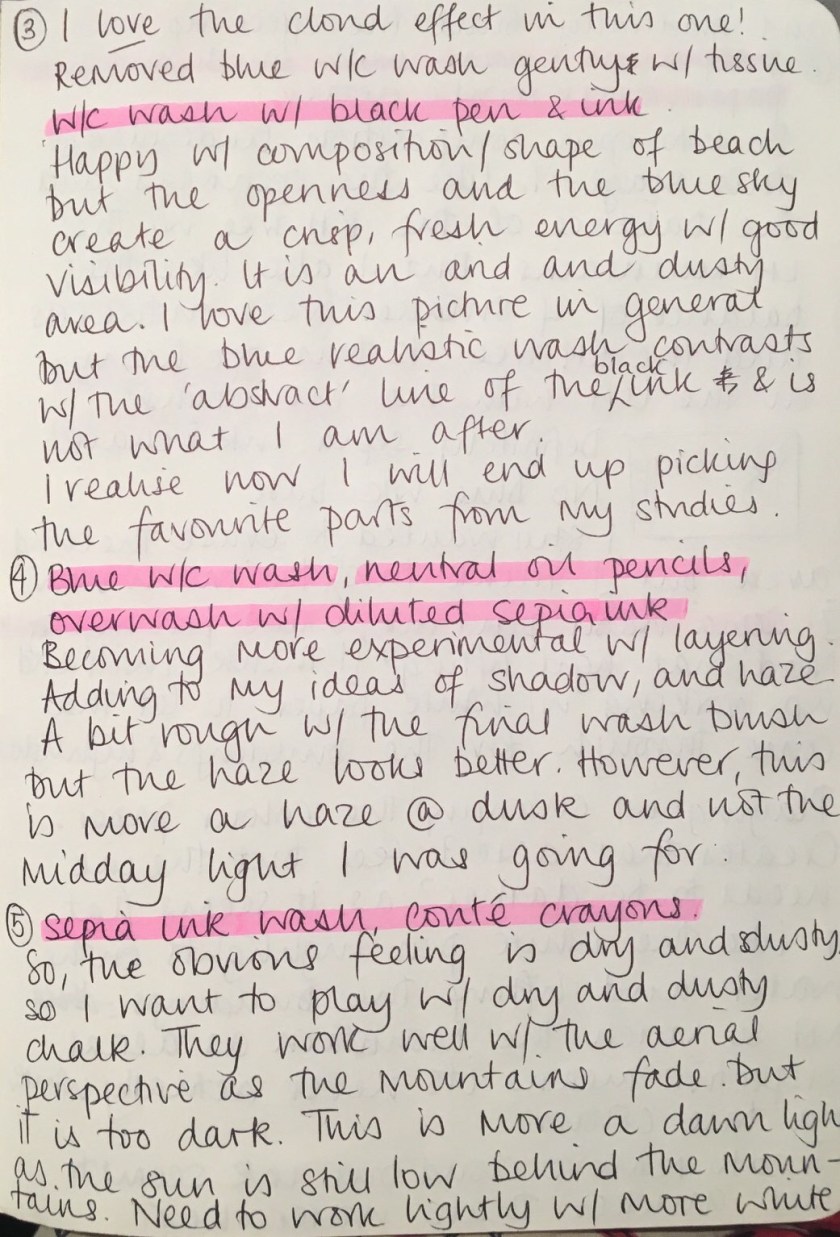 ③ I love the cloud effect in this one!
Removed blue w/c wash gently w/ tissue.
W/c wash w/ black pen & ink.
Happy w/ composition/shape of beach
but the openness and the blue sky
create a crisp, fresh energy w/ good
visibility. It is an arid and dusty
area. I love this picture in general
but the blue realistic wash contrasts
w/ the 'abstract' line of the black ink & is
not what I am after.
I realise now I will end up picking
the favourite parts from my studies.
④ Blue w/c wash, neutral oil pencils,
overwash w/ diluted sepia ink
Becoming more experimental w/ layering.
Adding to my ideas of shadow, and haze
A bit rough w/ the final wash brush
but the haze looks better. However, this
is more a haze @ dusk and not the
midday light I was going for.
⑤ Sepia ink wash, conté crayons.
So, the obvious feeling is dry and dusty,
so I want to play w/ dry and dusty
chalk. They work well w/ the aerial
perspective as the mountains fade. but
it is too dark. This is more a dawn ligh
as the sun is still low behind the moun-
tains. Need to work lightly w/ more white